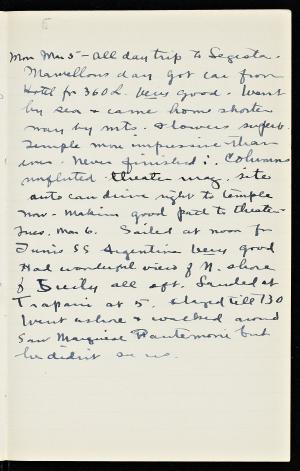 Mon Mar 5 - All day trip to Segesta.
Marvellous day got car from
Hotel for 360 L. very good. Went
by sea & came home shorter
way by mts. Flowers superb.
Temple more impressive than
ever. Never finished ∴ Columns
unfluted. theater mag. site
auto can drive right to temple
now. Making good path to theater-
Tues. Mar 6. Sailed at noon for
Tunis SS Argentina very good
Had wonderful view of N. shore
of Sicily all aft. Landed at
Trapani at 5. stayed till 730
Went ashore & walked around
Saw Marquise but
he didn't see us.